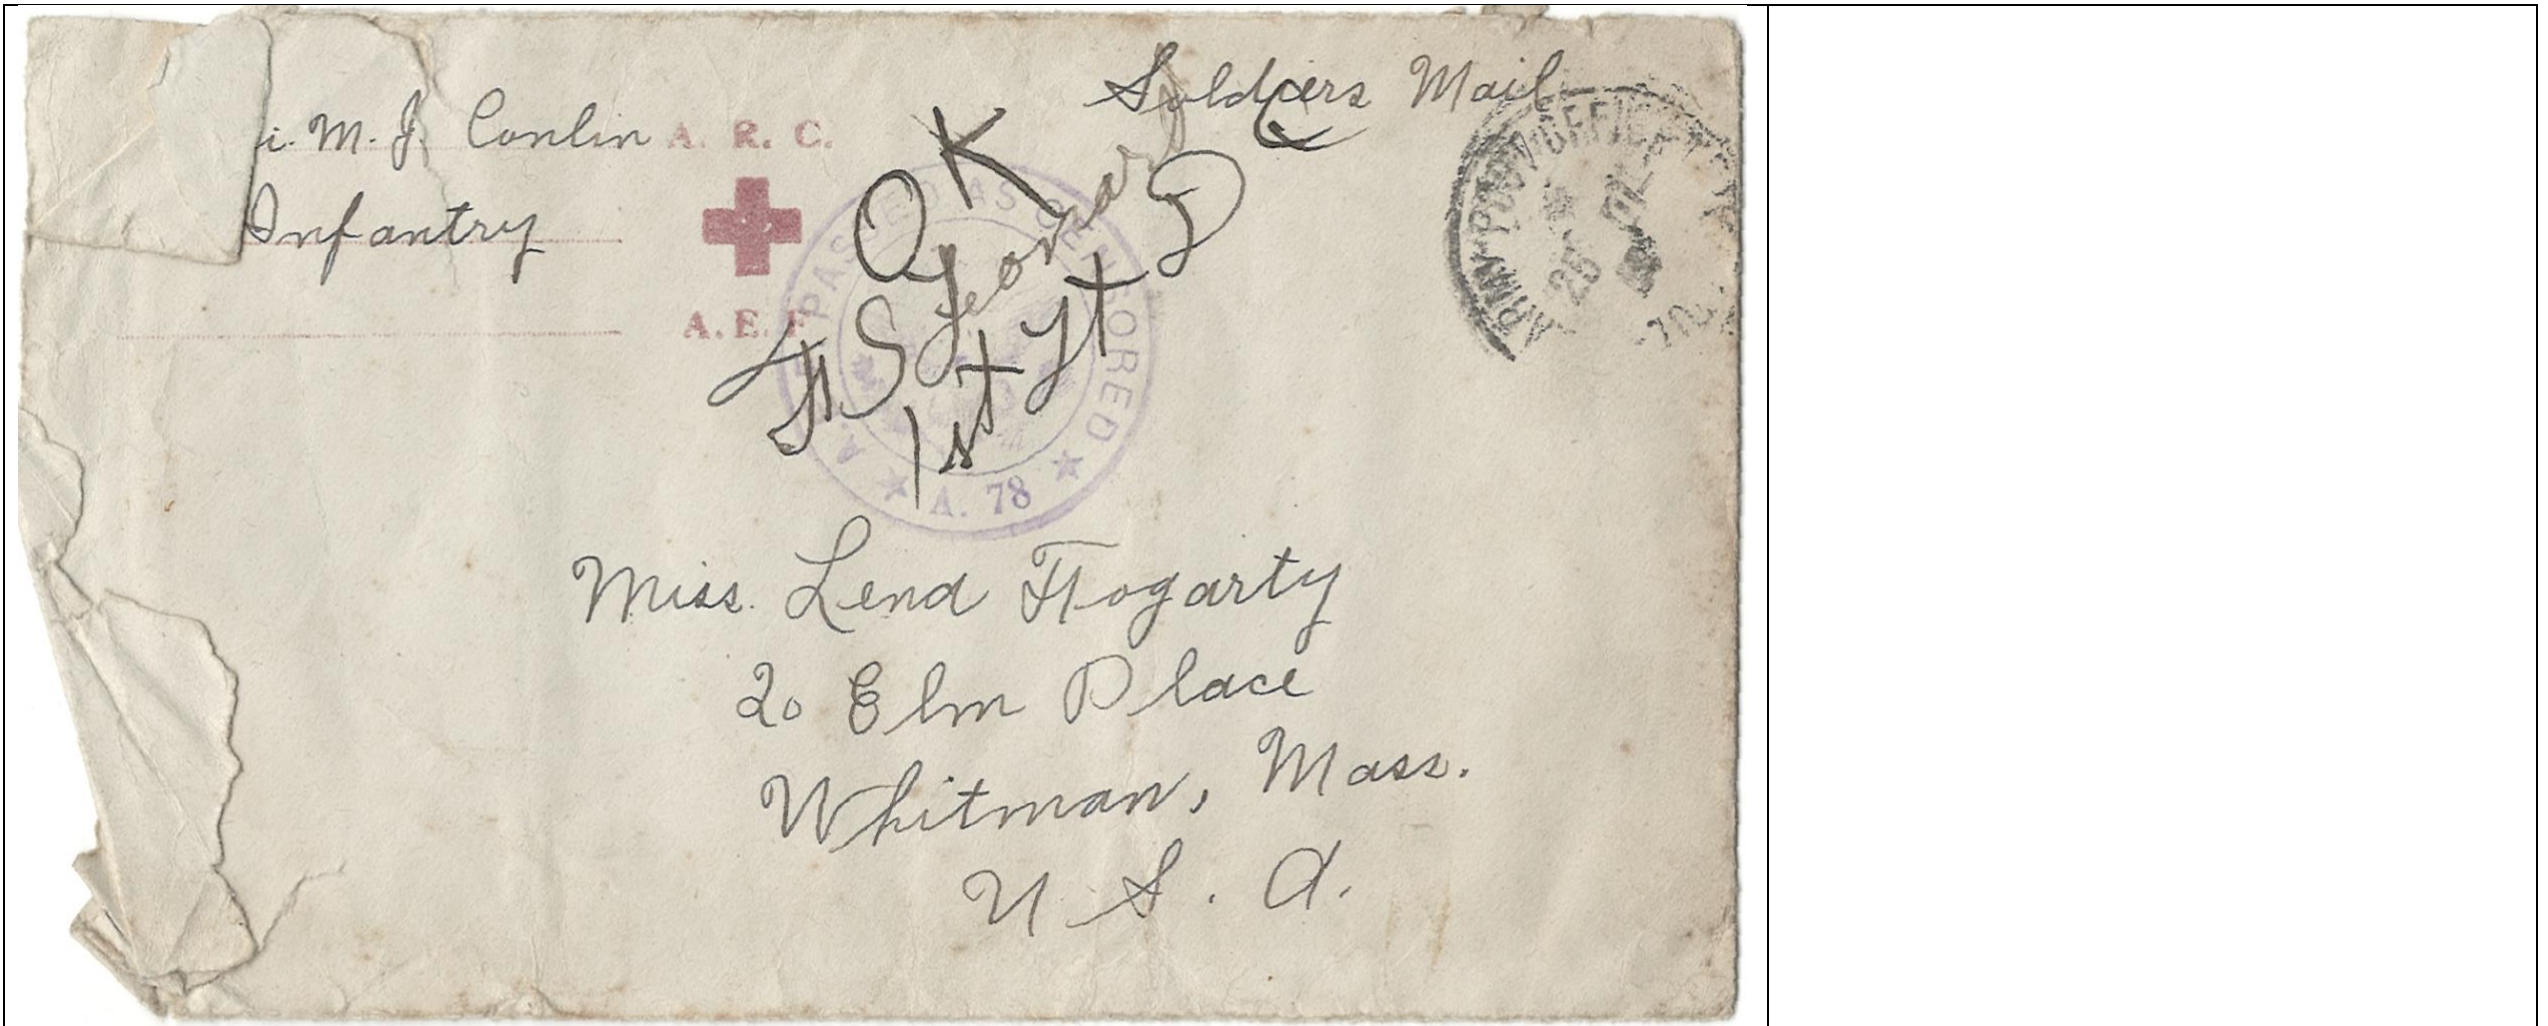 i. M. J. Conlin
Infantry
A. R. C.
A. E. F.
Soldiers Mail
OK
F S Leonard
1st Lt
PASSED AS CENSORED
A. 78
ARMY POST OFFICE
25
Miss. Lena Fogarty
20 Elm Place
Whitman, Mass.
U. S. A.